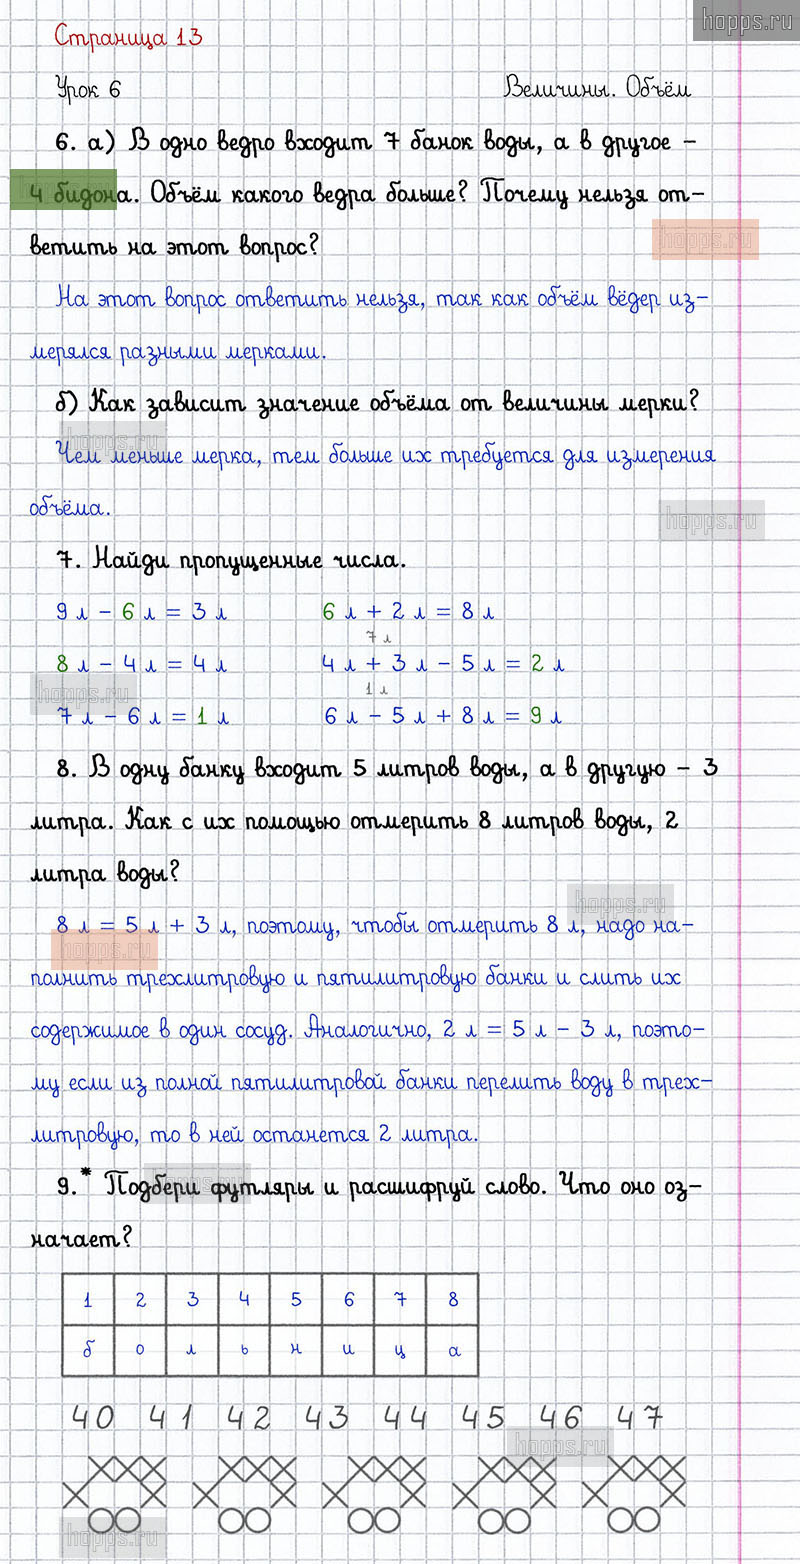 hopps.ru
Страница 13
Урок 6 Величины. Объём
6. а) В одно ведро входит 7 банок воды, а в другое –
4 бидона. Объём какого ведра больше? Почему нельзя от-
hopps.ru
ветить на этот вопрос?
На этот вопрос ответить нельзя, так как объём вёдер из-
мерялся разными мерками.
б) Как зависит значение объёма от величины мерки?
hopps.ru
Чем меньше мерка, тем больше их требуется для измерения
объёма.
hopps.ru
7. Найди пропущенные числа.
9 л – 6 л = 3 л 6 л + 2 л = 8 л
7 л
8 л – 4 л = 4 л 4 л + 3 л – 5 л = 2 л
hopps.ru
1 л
7 л – 6 л = 1 л 6 л – 5 л + 8 л = 9 л
8. В одну банку входит 5 литров воды, а в другую – 3
литра. Как с их помощью отмерить 8 литров воды, 2
литра воды?
hopps.ru
8 л = 5 л + 3 л, поэтому, чтобы отмерить 8 л, надо на-
hopps.ru
полнить трехлитровую и пятилитровую банки и слить их
содержимое в один сосуд. Аналогично, 2 л = 5 л – 3 л, поэто-
му если из полной пятилитровой банки перелить воду в трех-
литровую, то в ней останется 2 литра.
hopps.ru
9.* Подбери футляры и расшифруй слово. Что оно оз-
начает?
1 2 3 4 5 6 7 8
б о л ь н и ц а
40 41 42 43 44 45 46 47
hopps.ru
hopps.ru